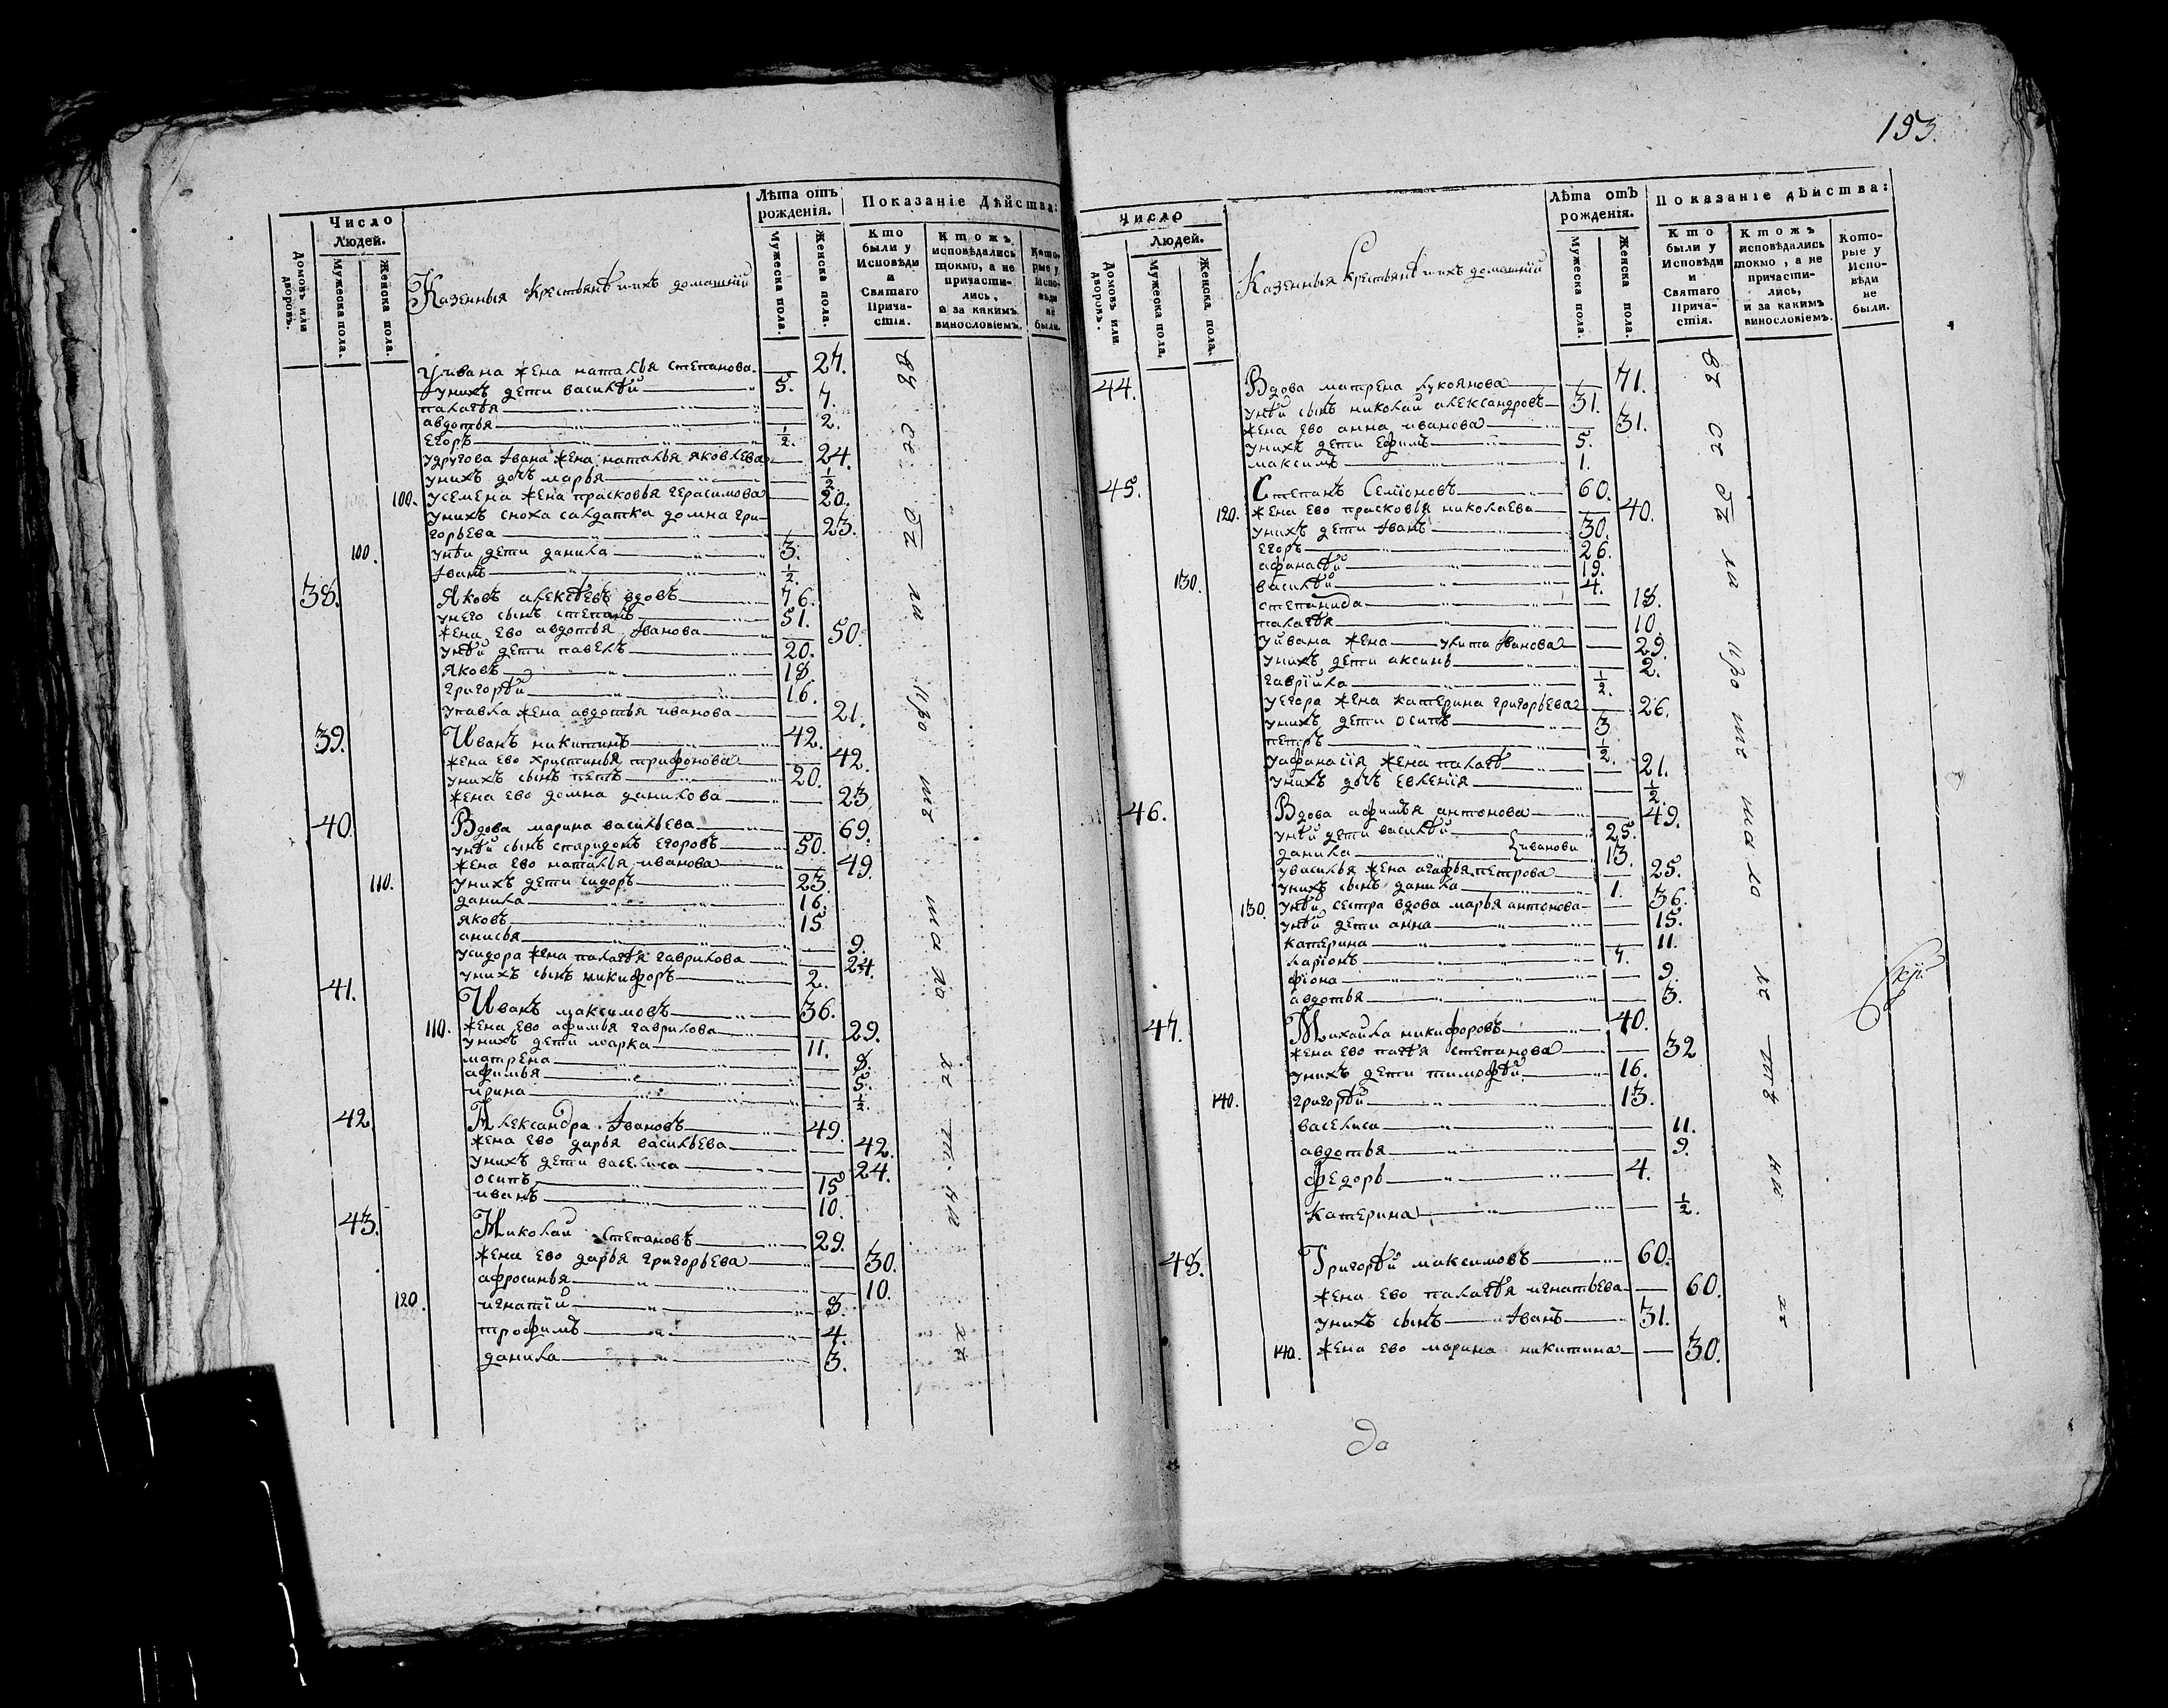 193.
Число
Людей.
Лѣта отъ рожденія.
Показаніе Дѣйства:
Домовъ или дворовъ.
Мужеска пола.
Женска пола.
Казенныя крестьянѣ и ихъ домашній
Мужеска пола.
Женска пола.
Кто были у Исповѣди и Святаго Прича-стія.
Ктожъ исповѣдались токмо, а не причасти-лись, и за какимъ винословіемъ.
Кото-рые у Испо-вѣди не были.
уивана жена наталья степанова — 27.
унихъ дети василѣй 5.
палагѣя — 7.
авдотья — 2.
Егоръ ½.
удругова Iвана жена наталья яковлева — 24.
унихъ дочь марья — ½
100. усемена жена прасковья герасимова — 20.
унихъ сноха салдатка домна гри-
горьева — 23.
100. унѣи дети данила 3.
Iванъ ½.
38. Яковъ алексѣевъ вдовъ 76.
унего сынъ степанъ 51.
жена ево авдотья Iванова — 50.
унѣй дети павелъ 20.
Яковъ 18.
григорѣй 16.
упавла жена авдотья иванова — 21.
39. Иванъ никитинъ 42.
жена ево христинья трифонова — 42.
унихъ сынъ петъ 20.
жена ево домна данилова — 23
40. Вдова марина васильева — 69.
унѣй сынъ спаридонъ Егоровъ 50.
жена ево наталья иванова — 49.
110. унихъ дети сидоръ 23.
данила 16.
яковъ 15
анисья — 9.
усидора жена палагѣя гаврилова — 24.
унихъ сынъ никифоръ 2.
41. Иванъ максимовъ 36.
110. жена ево афимья гаврилова — 29.
унихъ дети марка 11.
матрена — 8.
афимья — 5.
ирина — ½.
42. Александра Iвановъ 49.
жена ево дарья васильева — 42.
унихъ дети василиса — 24.
осипъ 15
иванъ 10.
43. Николай степановъ 29.
жена ево дарья григорьева — 30.
афросинья — 10.
120. игнатій 8.
трофимъ 4.
данила 3.
Число
Людей.
Лѣта отъ рожденія.
Показаніе дѣйства:
Домовъ или дворовъ.
Мужеска пола.
Женска пола.
Казенныя крестьянѣ и ихъ домашній
Мужеска пола.
Женска пола.
Кто были у Исповѣди и Святаго Прича-стія.
Ктожъ исповѣдались токмо, а не причасти-лись, и за какимъ винословіемъ.
Кото-рые у Испо-вѣди не были.
44. Вдова матрена лукоянова — 71.
унѣй сынъ николай александровъ 31.
жена ево анна иванова — 31.
унихъ дети Ефимъ 5.
максимъ 1.
45. Степанъ Семіоновъ 60.
120. жена ево прасковья николаева — 40.
унихъ дети Iванъ 30.
егоръ 26.
афанасѣй 19.
130. василѣй 4.
степанида — 18.
палагѣя — 10.
уйвана жена — улита Iванова — 29.
унихъ дети аксинь — 2.
гаврійла ½.
уегора жена катерина григорьева — 26.
унихъ дети осипъ 3
петръ ½.
уафанасія жена палагѣ — 21.
унихъ дочь евленія — ½.
46. Вдова афимья антонова — 49.
унѣй дети василѣй 25.
данила } иванови 13.
увасилья жена агафья петрова — 25.
унихъ сынъ данила 1.
130. унѣй сестра вдова марья антонова — 36.
унѣй дети анна — 15.
катерина — 11.
ларіонъ 7.
фіона — 9.
авдотья — 3.
47. Михайла никифоровъ 40.
жена ево пагѣя степанова — 32
унихъ дети тимофѣй 16.
140. григорѣй 13.
василиса — 11.
авдотья — 9.
федоръ 4.
катерина — ½.
48. Григорѣй максимовъ 60.
жена ево палагѣя игнатьева — 60.
унихъ сынъ — Iванъ 31.
140. жена ево марина никитина — 30.